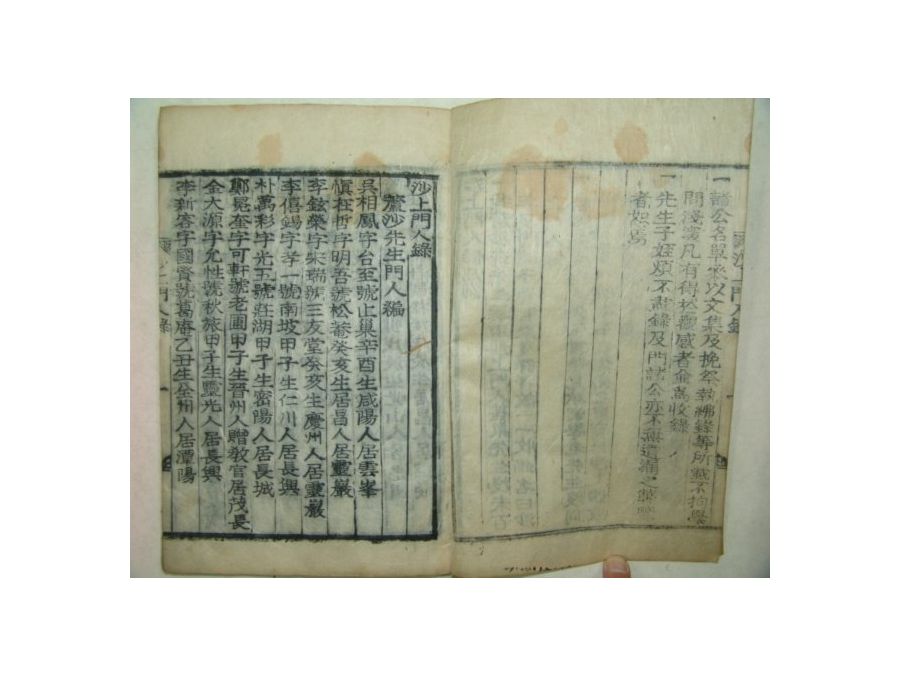 一 諸公名單采以文集及挽祭執紼錄等所載不拘舉
問淺深凡有得於觀感者僉爲收錄
一 先生子姪煩不載錄及門諸公亦不無遺漏之歎
者如焉
沙上門人錄
沙上門人錄
蘆沙先生門人編
吳相鳳字台至號止巢辛酉生咸陽人居雲峯
愼桂哲字明吾號松菴癸亥生居昌人居靈巖
李鉉榮字宋瑞號三友堂癸亥生慶州人居靈巖
李僖錫字孝一號南坡甲子生仁川人居長興
朴萬彩字光五號莊湖甲子生密陽人居長城
鄭冕奎字可軒號老圃甲子生晉州人贈敎官居茂長
金大源字允性號秋旅甲子生靈光人居長興
李新容字國賢號葛庵乙丑生全州人居潭陽
沙上門人錄
一